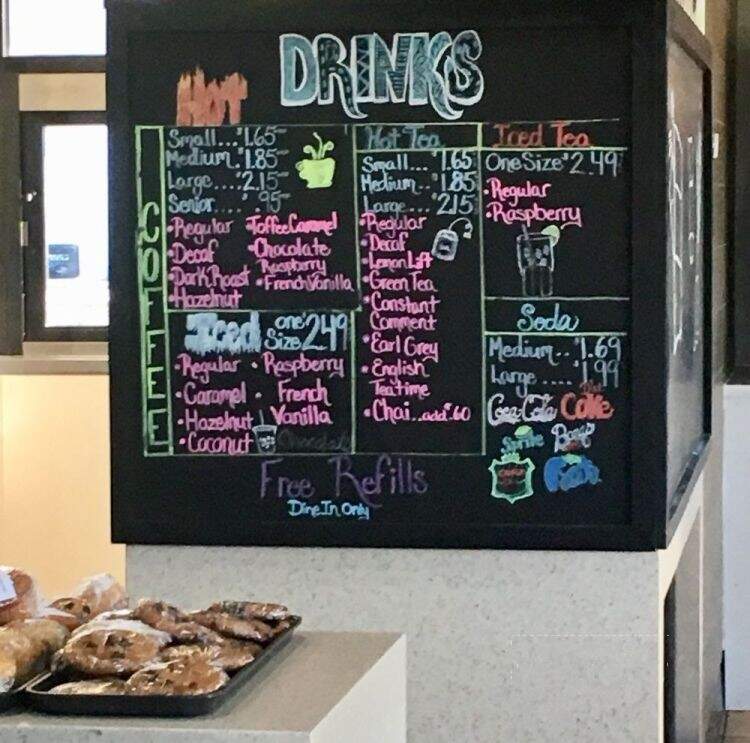 DRINKS
HOT
COFFEE
Small...$1.65
Medium.$1.85
Large....$2.15
Senior....$.95
•Regular
•Decaf
•Dark Roast
•Hazelnut
•Toffee Caramel
•Chocolate
Raspberry
•French Vanilla
Iced one Size $2.49
•Regular
•Caramel
•Hazelnut
•Coconut
•Raspberry
• French
Vanilla
Chocolate
Hot Tea
Small...$1.65
Medium..$1.85
Large....$2.15
•Regular
•Decaf
•Lemon Lift
•Green Tea
•Constant
Comment
•Earl Grey
•English
Teatime
•Chai...add $.60
Iced Tea
One Size $2.49
•Regular
•Raspberry
Soda
Medium..$1.69
Large....$1.99
Coca-Cola
Diet
Coke
Sprite
Barq's
Free Refills
Dine In Only